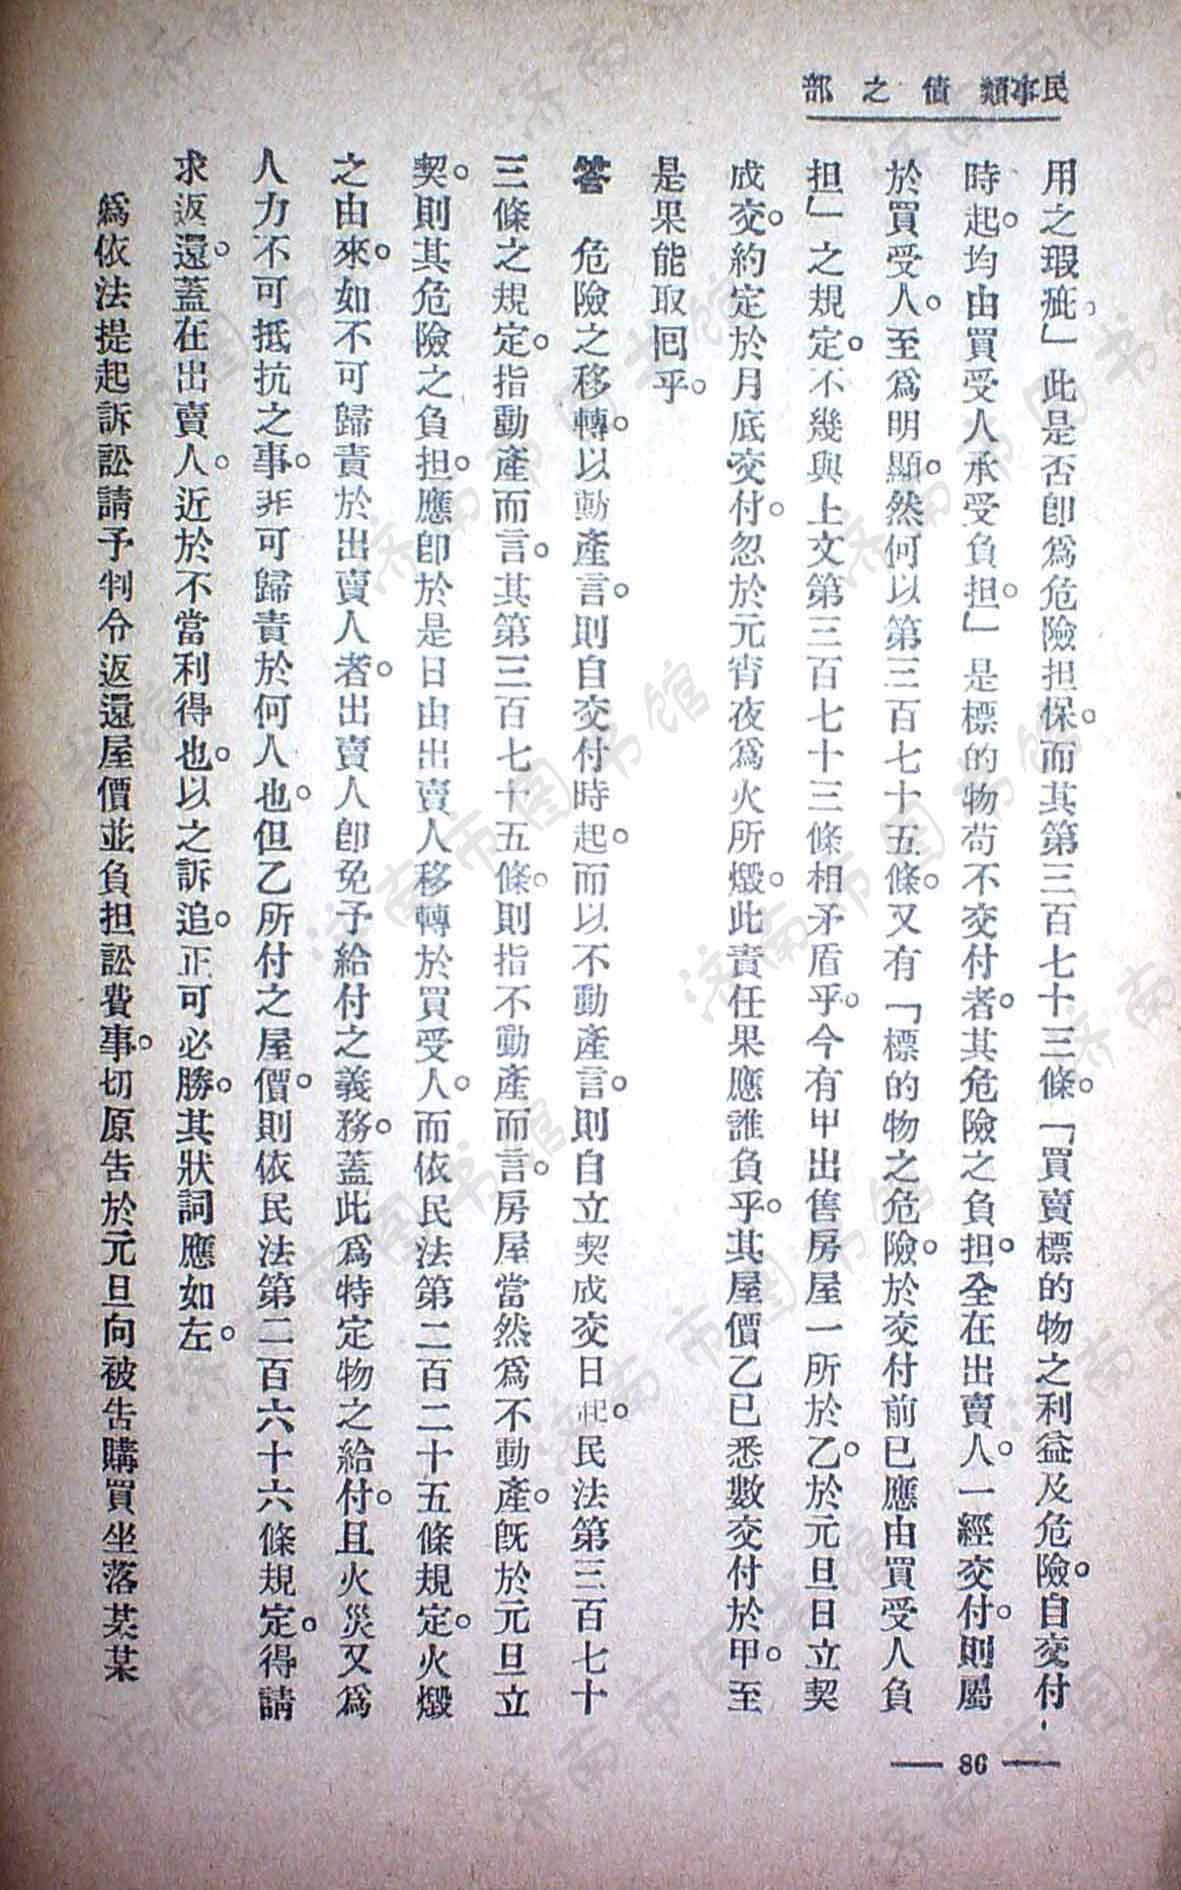 民事類 債之部
用之瑕疵。」此是否卽爲危險担保。而其第三百七十三條。「買賣標的物之利益及危險。自交付
時起。均由買受人承受負担。」是標的物苟不交付者。其危險之負担。全在出賣人。一經交付。則屬
於買受人。至爲明顯。然何以第三百七十五條。又有「標的物之危險。於交付前已應由買受人負
担」之規定。不幾與上文第三百七十三條相矛盾乎。今有甲出售房屋一所於乙。於元旦日立契
成交。約定於月底交付。忽於元宵夜爲火所燬。此責任果應誰負乎。其屋價乙已悉數交付於甲。至
是果能取回乎。
答　危險之移轉。以動產言。則自交付時起。而以不動產言。則自立契成交日起。民法第三百七十
三條之規定。指動產而言。其第三百七十五條。則指不動產而言。房屋當然爲不動產。旣於元旦立
契。則其危險之負担。應卽於是日由出賣人移轉於買受人。而依民法第二百二十五條規定。火燬
之由來。如不可歸責於出賣人者。出賣人卽免予給付之義務。蓋此爲特定物之給付。且火災又爲
人力不可抵抗之事。非可歸責於何人也。但乙所付之屋價。則依民法第二百六十六條規定。得請
求返還。蓋在出賣人。近於不當利得也。以之訴追。正可必勝。其狀詞應如左。
爲依法提起訴訟請予判令返還屋價並負担訟費事。切原告於元旦向被告購買坐落某某
— 86 —
济南市图书馆